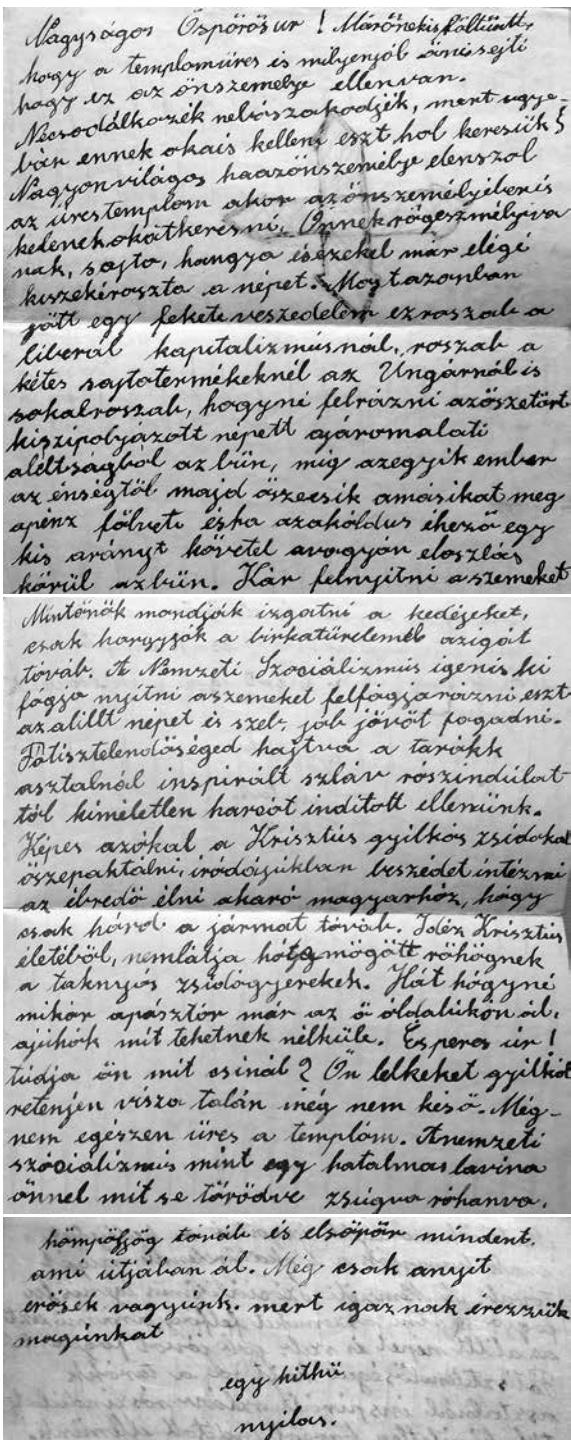 Nagyságos Öspörösur ! Márönekis föltünt,
hogy a templomüres is milyenjól ámisejti
hogy ez az önszemélye ellenvan.
Necsodálkozék nebászakodjék, mert ugye-
bár ennek okais kellem eszt hol keresük?
Nagyonvilágos haazönszemélye elenszol
az ürestemplom akor azönszemélyébenis
kelenekokátkeresni. Önnek rögeszmélyiva
nak, sajto, hangya ésezekel már elégé
kiszekéroszta a népet. Mostazonban
jött egy fekete veszedelem ezroszab a
liberál kapitalizmúsnál, roszab a
kétes sajtotermékeknél az Ungárnál is
sokalroszab, hogyne felrázni azöszetört
kiszipolyázott népett ajáromalati
aléltságból az bün, mig azegyik ember
az énségtől majd öszecsik amásikat meg
apénz fölveti ésha azakóldus éhező egy
kis arányt követel avagyón eloszlás
körül azbün. Kár felnyitni a szemeket
Mintönök mondják izgatni a kedéjeket,
csak hargyják a birkatürelemel azigát
továb. A Nemzeti Szociálizmús igenis ki
fogja nyitni aszemeket felfogjarázni eszt
azalillt népet is szeb, jób jövöt fogadni.
Fötisztelendöséged hajtva a tarokk
asztalnál inspirált szláv rószindúlat-
tól kiméletlen harcót inditott ellenünk.
Képes azókal a Krisztús gyilkós zsidokal
öszepaktálni, iródájúkban beszédet intézni
az ébredö élni akaró magyarhóz, hógy
csak hórd a jármat tóváb. Idéz Krisztús
életéböl, nemlátja hógy mögött röhögnek
a taknyós zsidógyerekek. Hát hógyne
mikor apásztór már az ö óldalúkon ál,
ajúhók mit tehetnek nélküle. Esperes úr !
túdja ön mit csinál ? Ön lelkeket gyilkól
retenjen visza talán még nem késö. Még-
nem egészen üres a templóm. Anemzeti
szóciálizmús mint egy hatalmas lavina
önnel mit se törödve zsúgva róhanva.
hömpöljög továb és elsöpör mindent.
ami útjában ál. Még csak anyit
erösek vagyúnk. mert igaznak érezzük
magúnkat
egy hithü
nyilas.